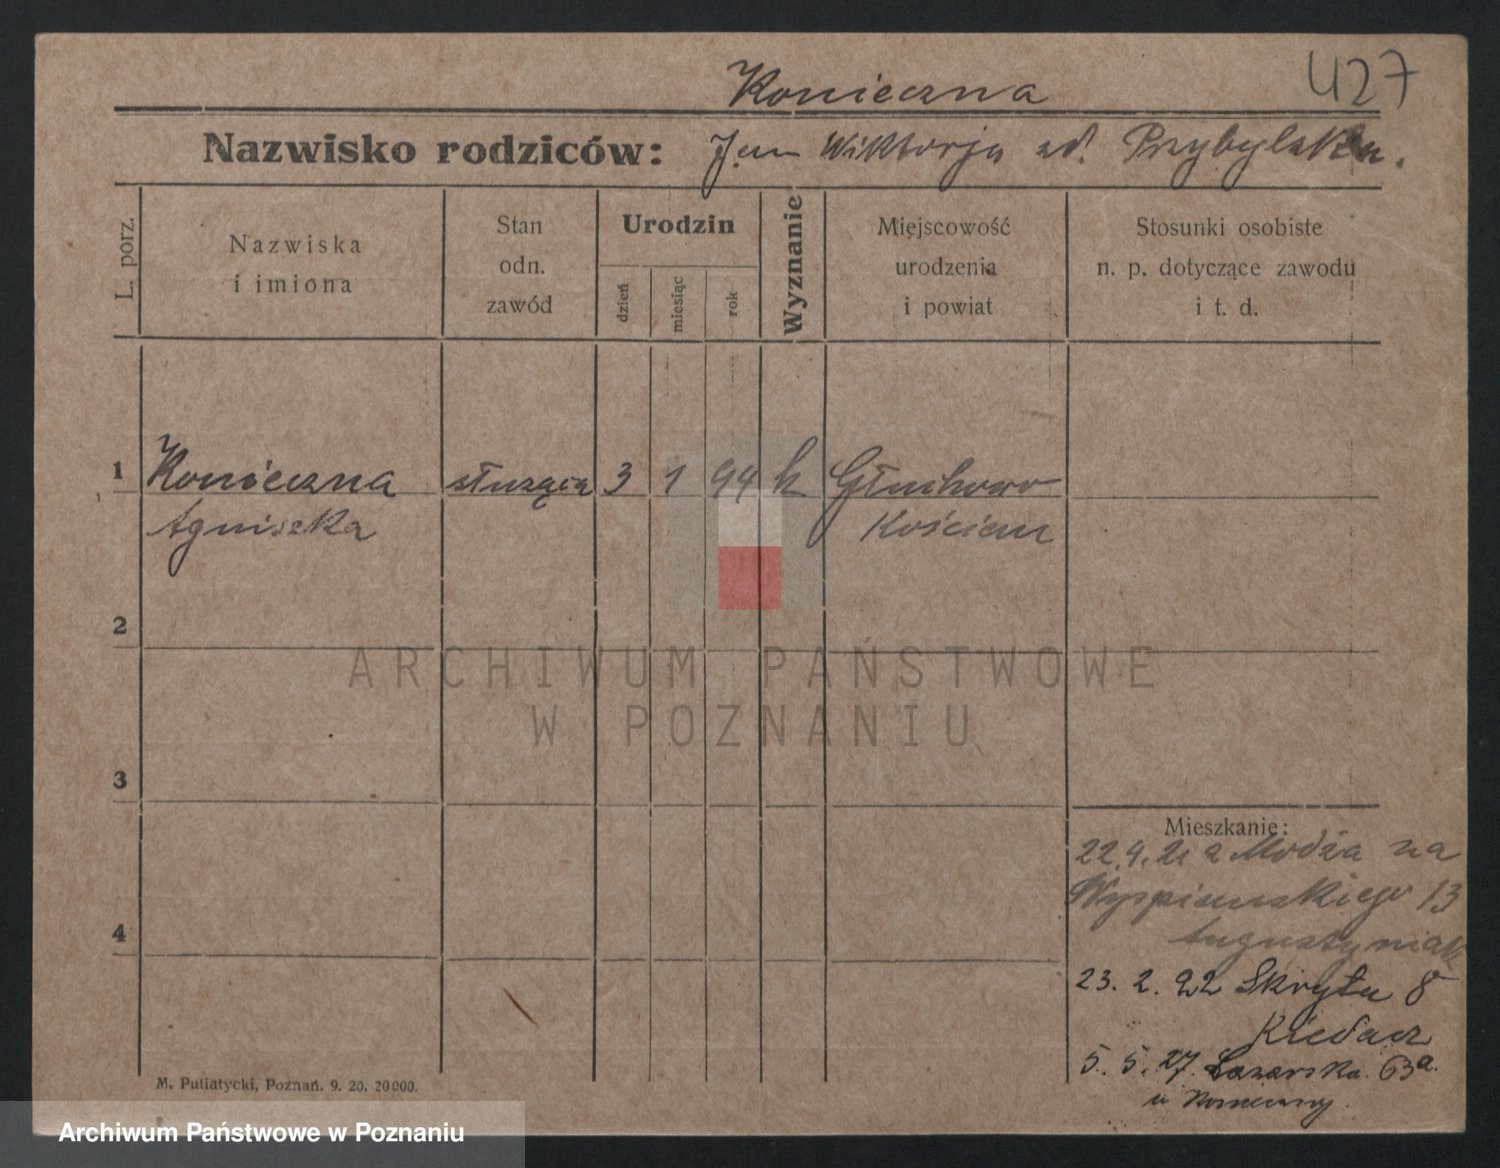 427
Konieczna
Nazwisko rodziców: Jan Wiktorja zd. Przybylska.
L. porz.
Nazwiska
i imiona
Stan
odn.
zawód
Urodzin
dzień
miesiąc
rok
Wyznanie
Miejscowość
urodzenia
i powiat
Stosunki osobiste
n. p. dotyczące zawodu
i t. d.
1 Konieczna służąca 3 1 94 k Głuchowo
Agnieszka Kościan
2
3
4
Mieszkanie:
22.4.21 na
Wyspiańskiego 13
Augustyniak
23. 2. 22 Skryta 8
5. 5. 27. Łazarska 63a.
u Konieczny
M. Putiatycki, Poznań. 9. 20. 20000.
ARCHIWUM PAŃSTWOWE
W POZNANIU
Archiwum Państwowe w Poznaniu